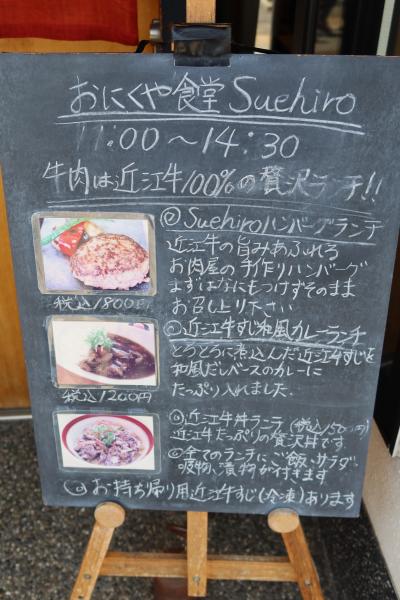 おにくや食堂 Suehiro
11:00〜14:30
牛肉は近江牛100%の贅沢ランチ!!
◎Suehiroハンバーグランチ
近江牛の旨みあふれる
お肉屋の手作りハンバーグ
まずはなにもつけずそのまま
お召し上り下さい
税込1800円
◎近江牛すじ和風カレーランチ
とろとろに煮込んだ近江牛すじを
和風だしベースのカレーに
たっぷり入れました.
税込1200円
◎近江牛丼ランチ(税込1500円)
近江牛たっぷりの贅沢丼です
◎全てのランチにご飯、サラダ、
吸物、漬物が付きます
◎お持ち帰り用近江牛すじ(冷凍)あります